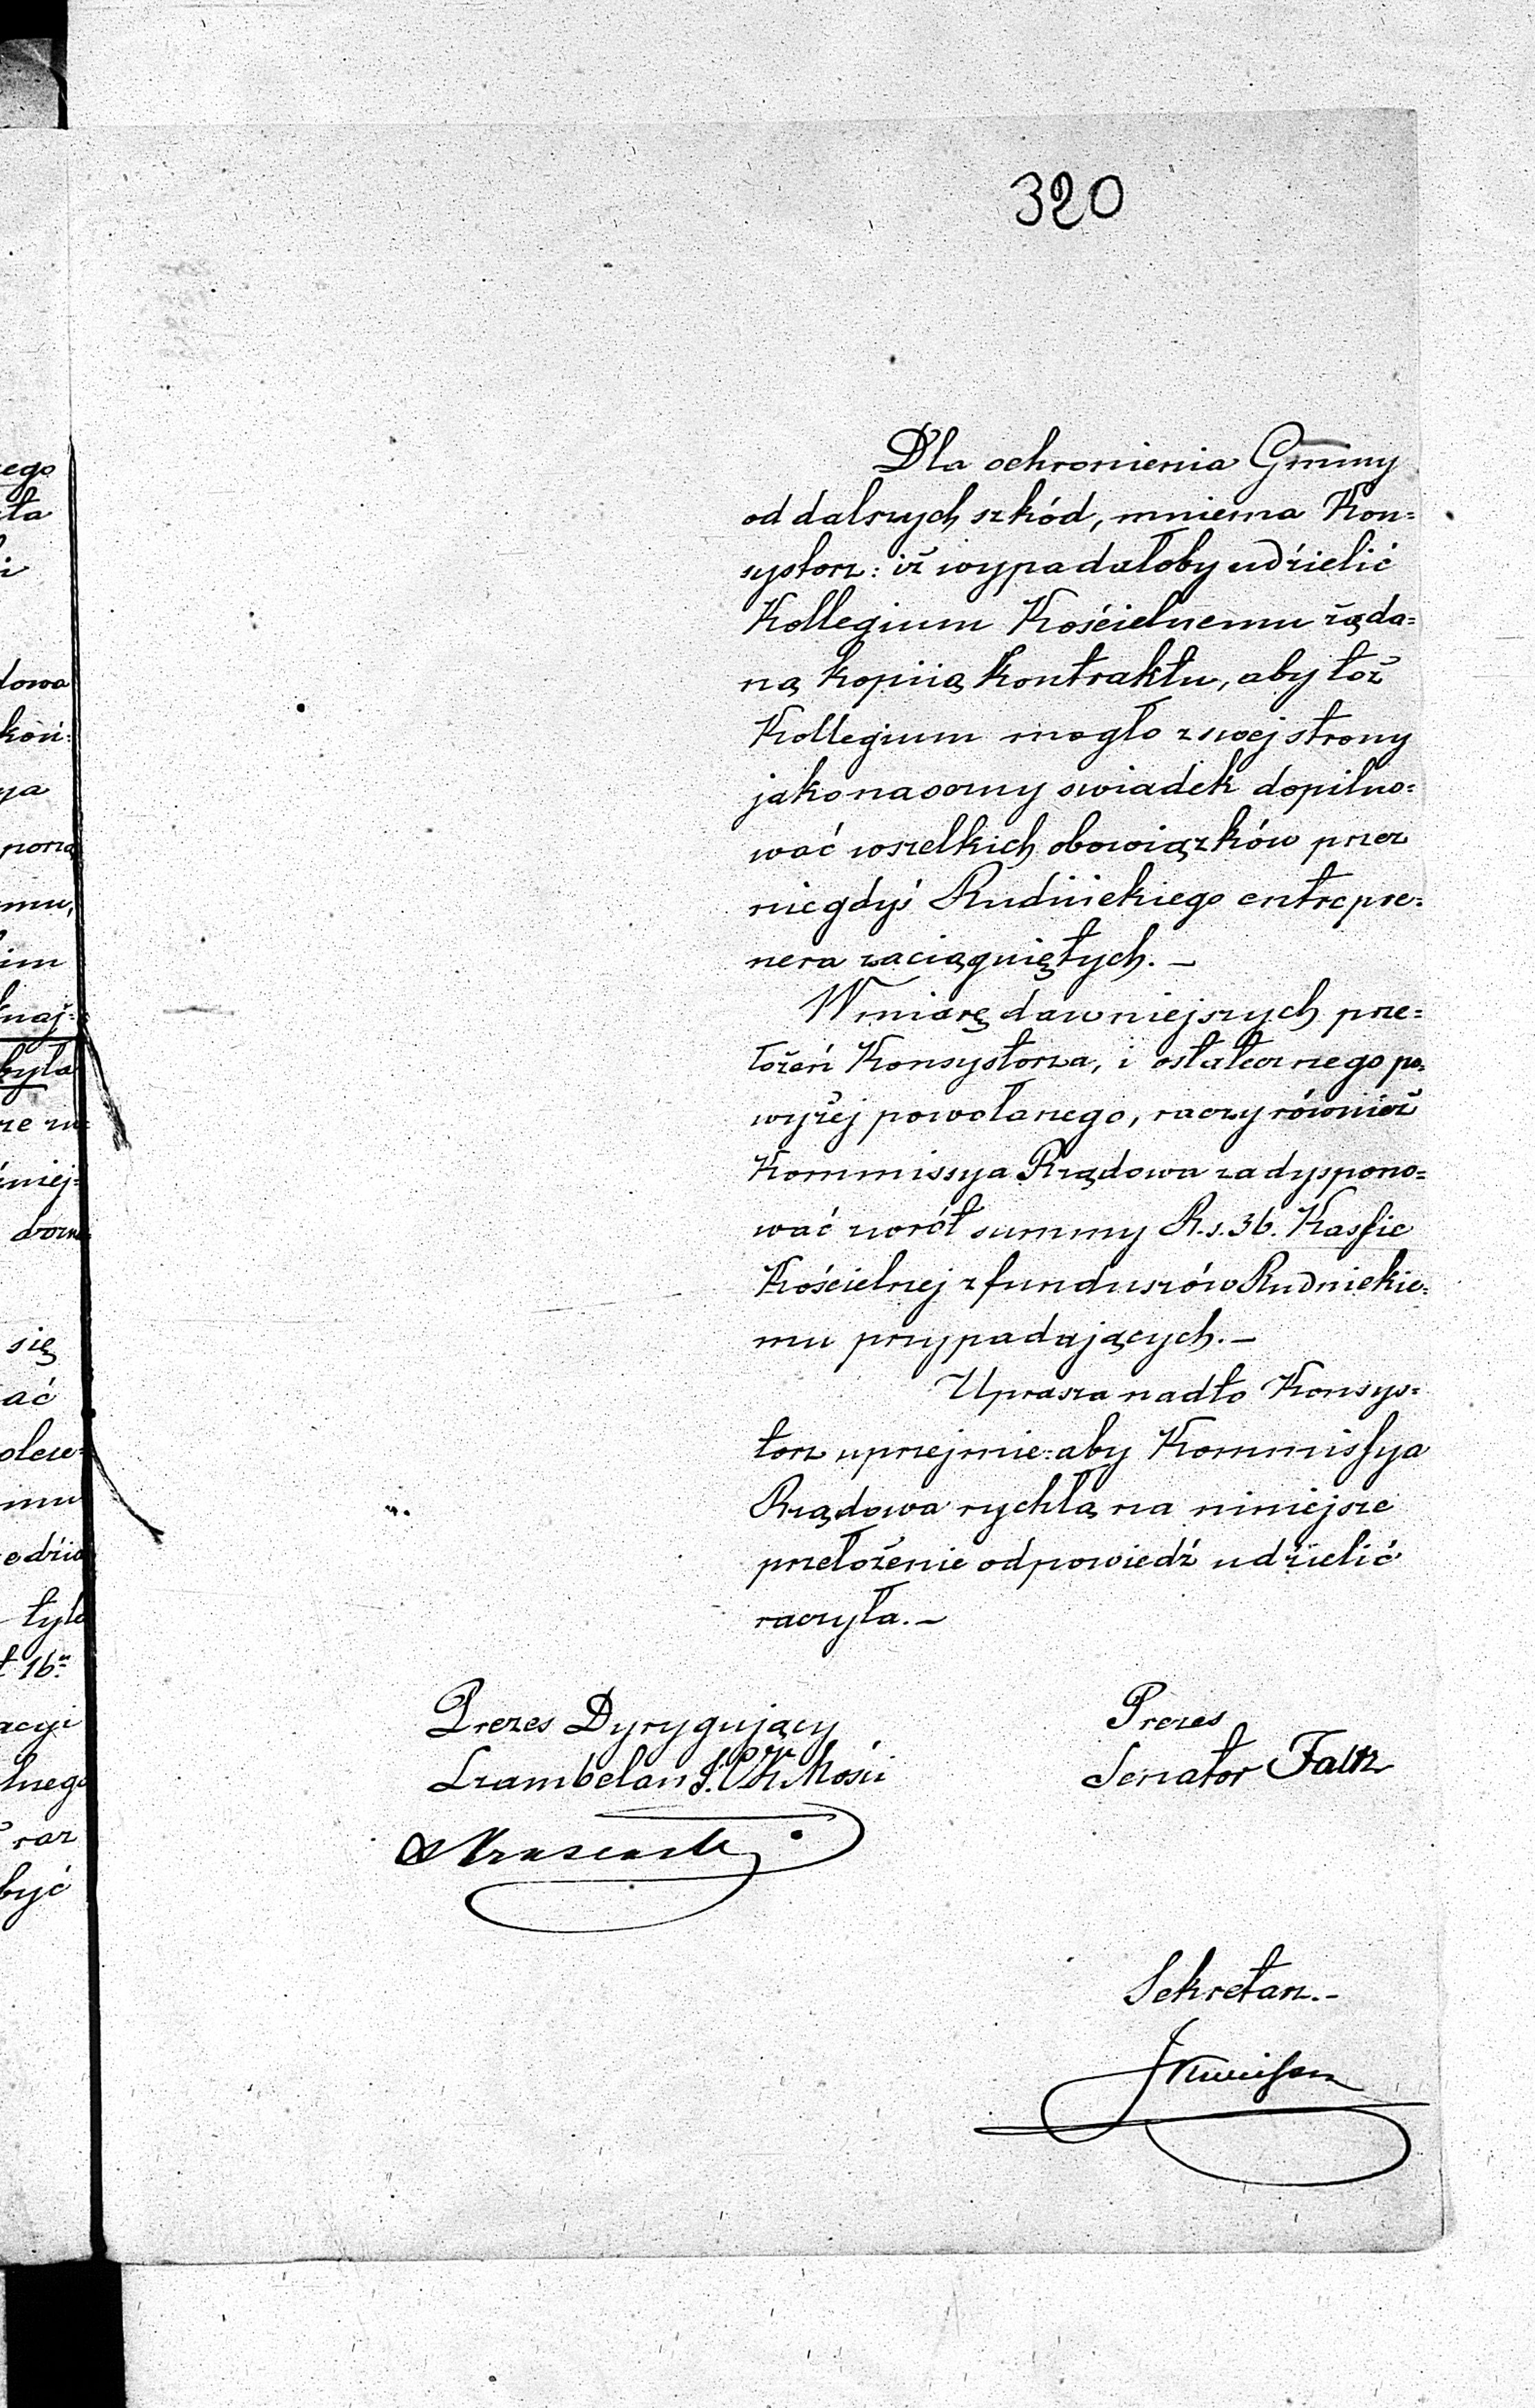 320
Dla ochronienia Gminy
od dalszych szkód, mniema Kon=
systorz: iż wypadałoby udzielić
Kollegium Kościelnemu żąda=
ną kopiią kontraktu, aby toż
Kollegium mogło z swej strony
jako naoczny swiadek dopilno=
wać wszelkich obowiązków przez
niegdyś Rudnickiego entrepre=
nera zaciągniętych. —
W miarę dawniejszych prze=
łożeń Konsystorza, i ostatecznego po=
wyżej powołanego, raczy również
Kommissya Rządowa zadyspono=
wać zwrót summy R.s. 36. Kassie
Kościelnej z funduszów Rudnickie=
mu przypadających. —
Uprasza nadto Konsys=
torz uprzejmie: aby Kommissya
Rządowa rychłą na niniejsze
przełożenie odpowiedź udzielić
raczyła. —
Prezes Dyrygujący
Prezes
Szambelan J. C. K. Mości
Senator
Sekretarz. —